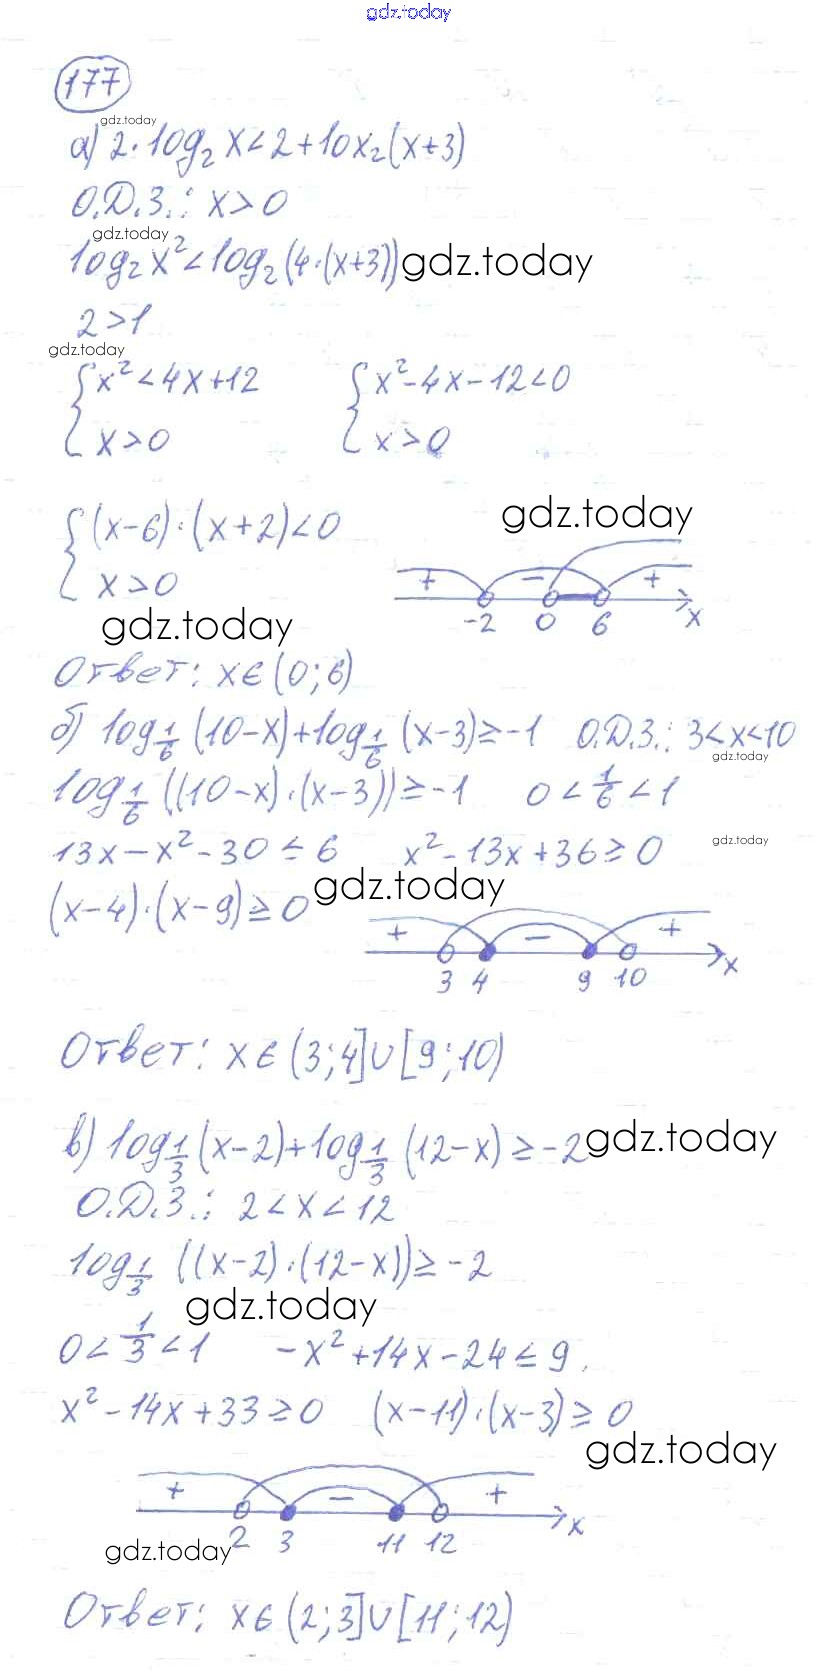 gdz.today
177
gdz.today
а) 2·log₂ x < 2 + 10x₂(x+3)
О.Д.З.: x > 0
gdz.today
log₂ x² < log₂ (4·(x+3)) gdz.today
2 > 1
gdz.today
{ x² < 4x + 12 { x² - 4x - 12 < 0
{ x > 0 { x > 0
gdz.today
{ (x-6)·(x+2) < 0
{ x > 0
+ - +
-2 0 6 x
gdz.today
Ответ: x ∈ (0; 6)
б) log_{1/6} (10-x) + log_{1/6} (x-3) ≥ -1 О.Д.З.: 3 < x < 10
gdz.today
log_{1/6} ((10-x)·(x-3)) ≥ -1 0 < 1/6 < 1
13x - x² - 30 ≤ 6 x² - 13x + 36 ≥ 0 gdz.today
(x-4)·(x-9) ≥ 0 gdz.today
+ - +
3 4 9 10 x
Ответ: x ∈ (3; 4] ∪ [9; 10)
в) log_{1/3} (x-2) + log_{1/3} (12-x) ≥ -2 gdz.today
О.Д.З.: 2 < x < 12
log_{1/3} ((x-2)·(12-x)) ≥ -2
gdz.today
0 < 1/3 < 1 -x² + 14x - 24 ≤ 9
x² - 14x + 33 ≥ 0 (x-11)·(x-3) ≥ 0
gdz.today
+ - +
2 3 11 12 x
gdz.today
Ответ: x ∈ (2; 3] ∪ [11; 12)